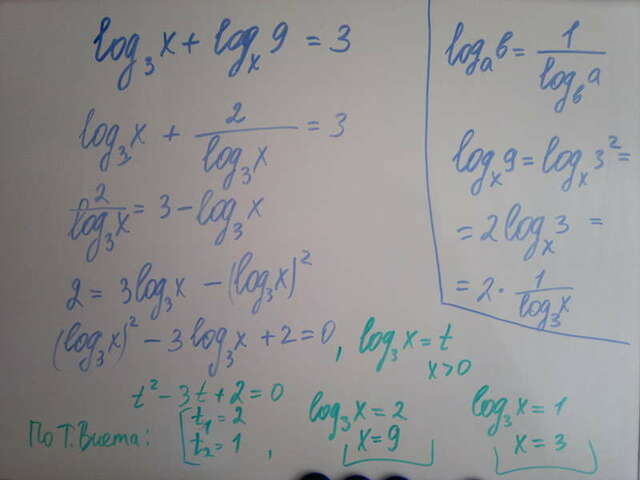 log₃x + logₓ9 = 3
log₃x + 2/log₃x = 3
2/log₃x = 3 - log₃x
2 = 3log₃x - (log₃x)²
(log₃x)² - 3log₃x + 2 = 0, log₃x = t
x > 0
t² - 3t + 2 = 0
По Т. Виета: [t₁ = 2
t₂ = 1,
log₃x = 2
x = 9
log₃x = 1
x = 3
logₐb = 1/log_b a
logₓ9 = logₓ3² =
= 2logₓ3 =
= 2 · 1/log₃x